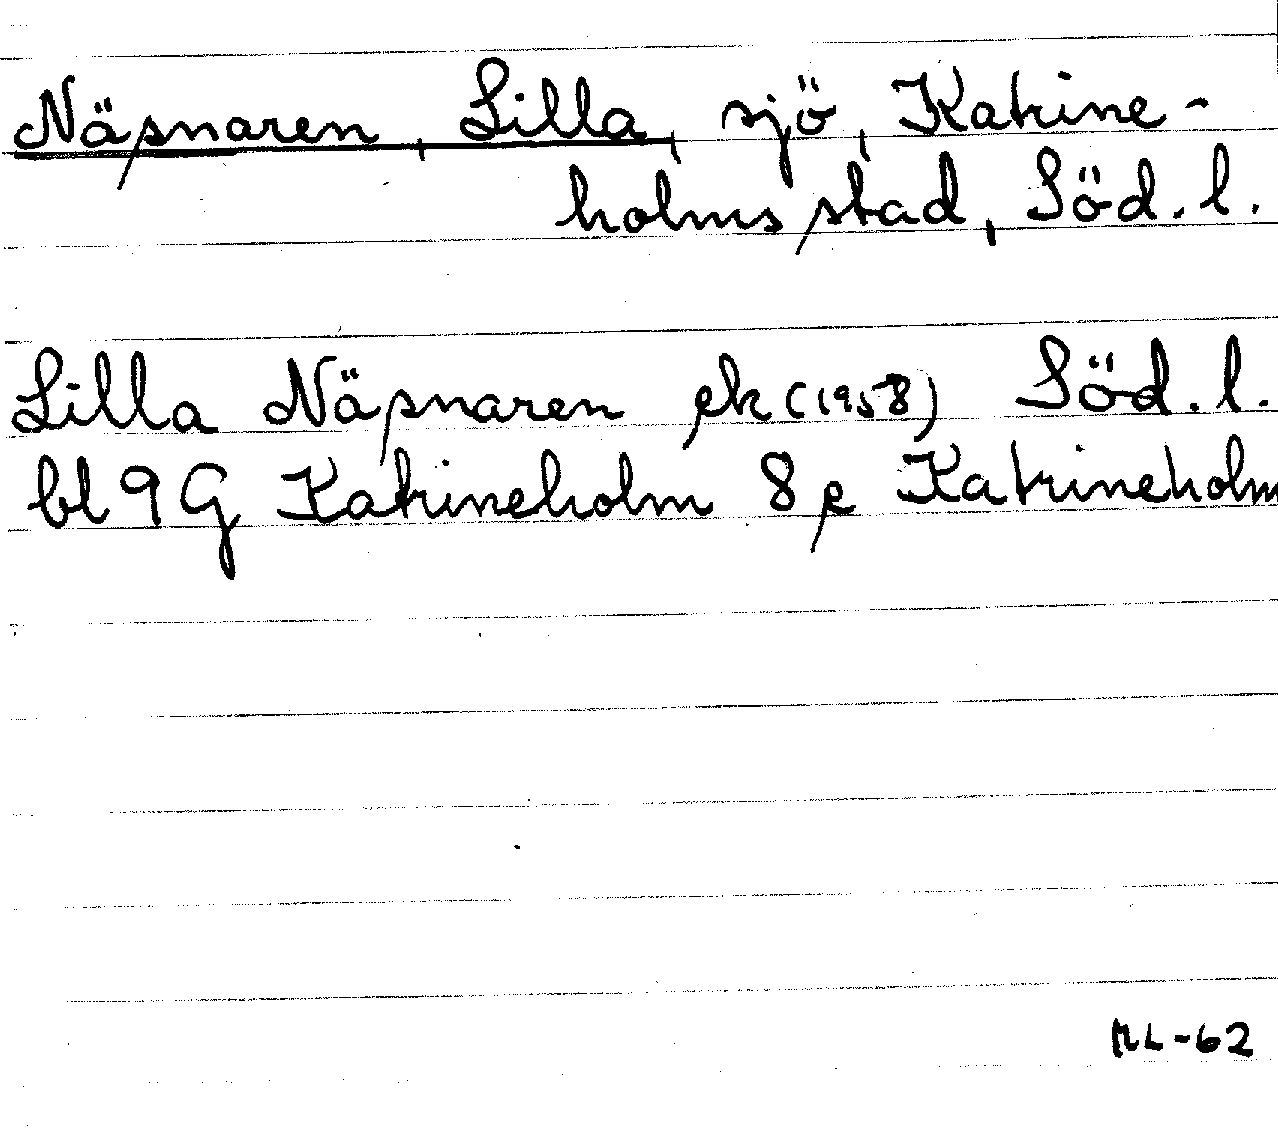 Näsnaren, Lilla, sjö, Katrine-
holms stad, Söd. l.
Lilla Näsnaren ek (1958) Söd. l.
bl 9 G Katrineholm 8 e Katrineholm
ML-62